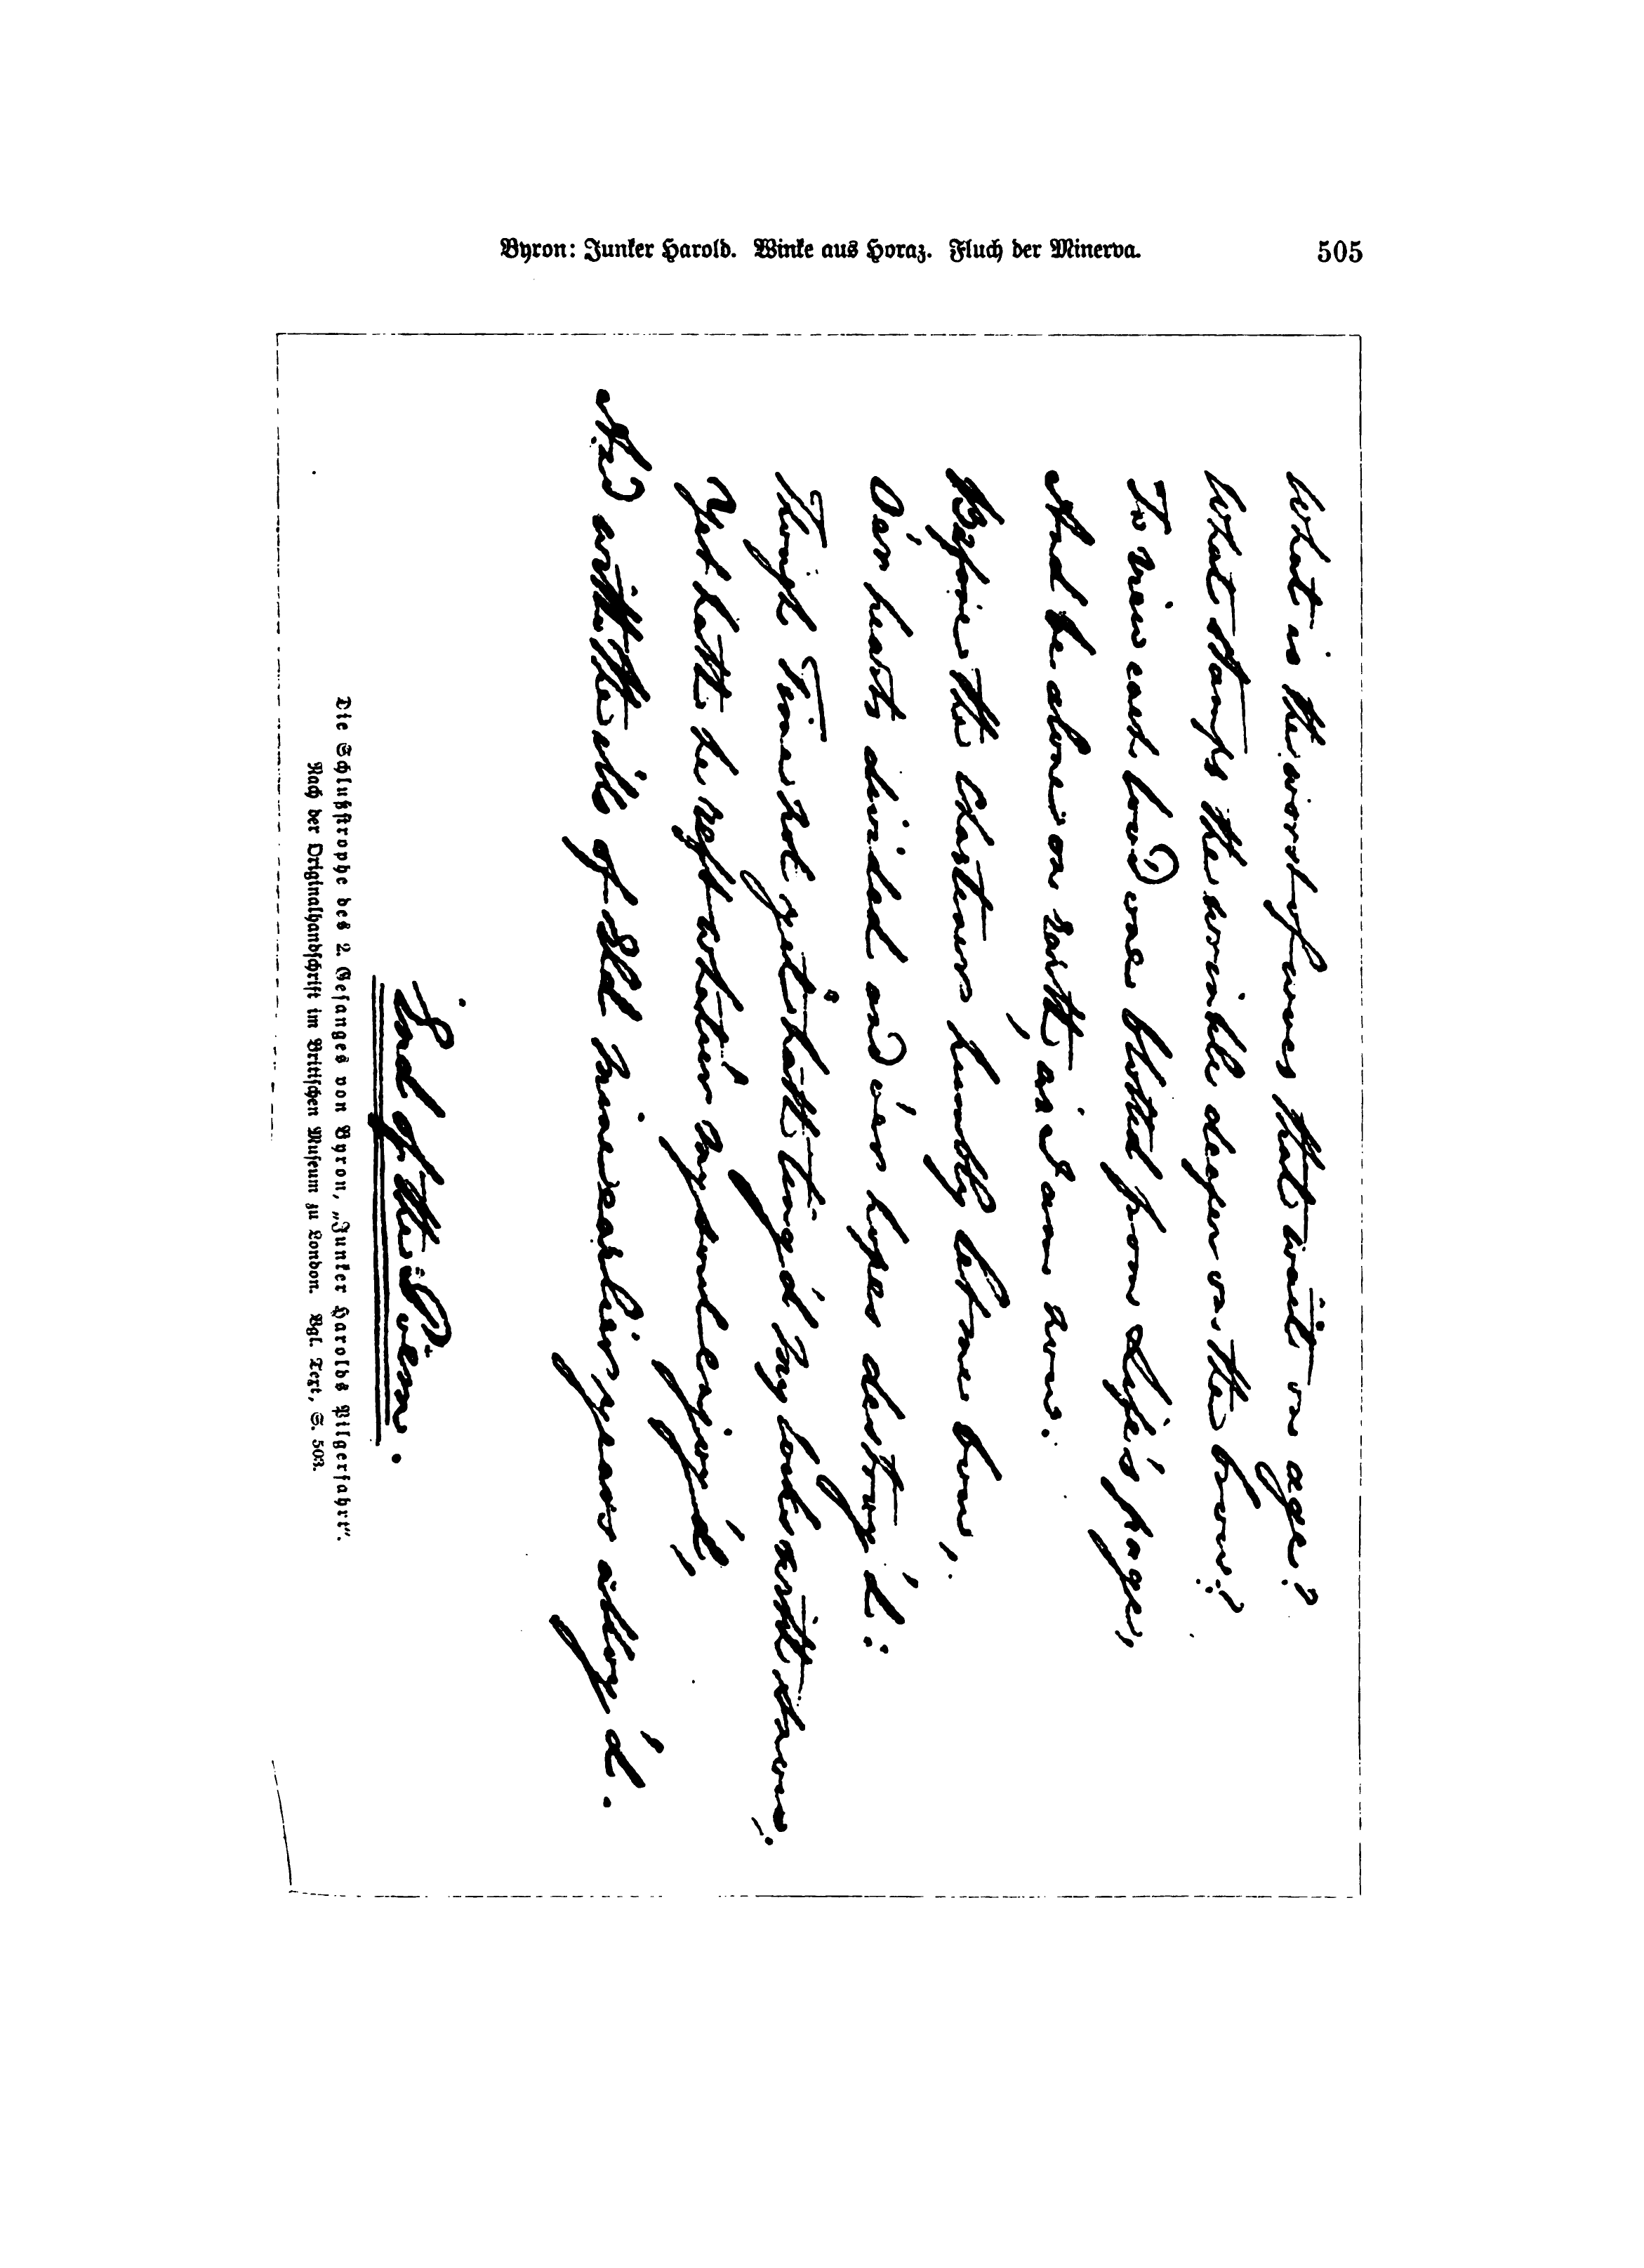 Byron: Junker Harold. Winke aus Horaz. Fluch der Minerva. 505
What is the worst of woes that wait on age?
What stamps the wrinkle deeper on the brow?
To view each loved one blotted from Life's page,
And be alone on Earth, as I am now.
Before the Chastener humbly let me bow,
O'er hearts divided and o'er hopes destroy'd:
Though Time not yet hath ting'd My locks with snow,
Yet hath he reft whate'er my soul enjoy'd,
And with the ills of Eld mine earlier years alloy'd.
End of the Poem.
Die Schlußstrophe des 2. Gesanges von Byron, „Junker Harolds Pilgerfahrt“.
Nach der Originalhandschrift im Britischen Museum zu London. Vgl. Text, S. 503.